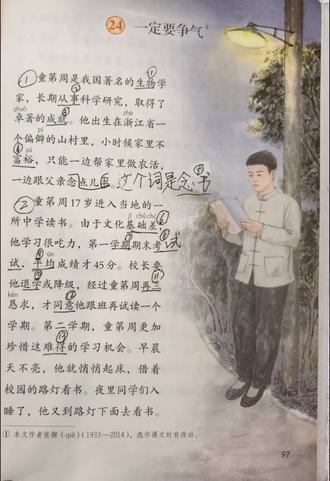 24 一定要争气①
① 童第周是我国著名的生物学
家，长期从事科学研究，取得了
zhuó zhè
卓著的成就。他出生在浙江省一
pì
个偏僻的山村里，小时候家里不
yù
富裕，只能一边帮家里做农活，
一边跟父亲念点儿书。这个词是念书
② 童第周17岁进入当地的一
所中学读书。由于文化基础差，
jī chǔ chà
他学习很吃力，第一学期期末考试
jūn
试，平均成绩才45分。校长要
他退学或降级，经过童第周再三
kěn
恳求，才同意他跟班再试读一个
学期。第二学期，童第周更加
珍惜这难得的学习机会。早晨
天不亮，他就悄悄起床，借着
校园的路灯看书。夜里同学们入
睡了，他又到路灯下面去看书。
① 本文作者张锲（qiè）（1933—2014），选作课文时有改动。
97